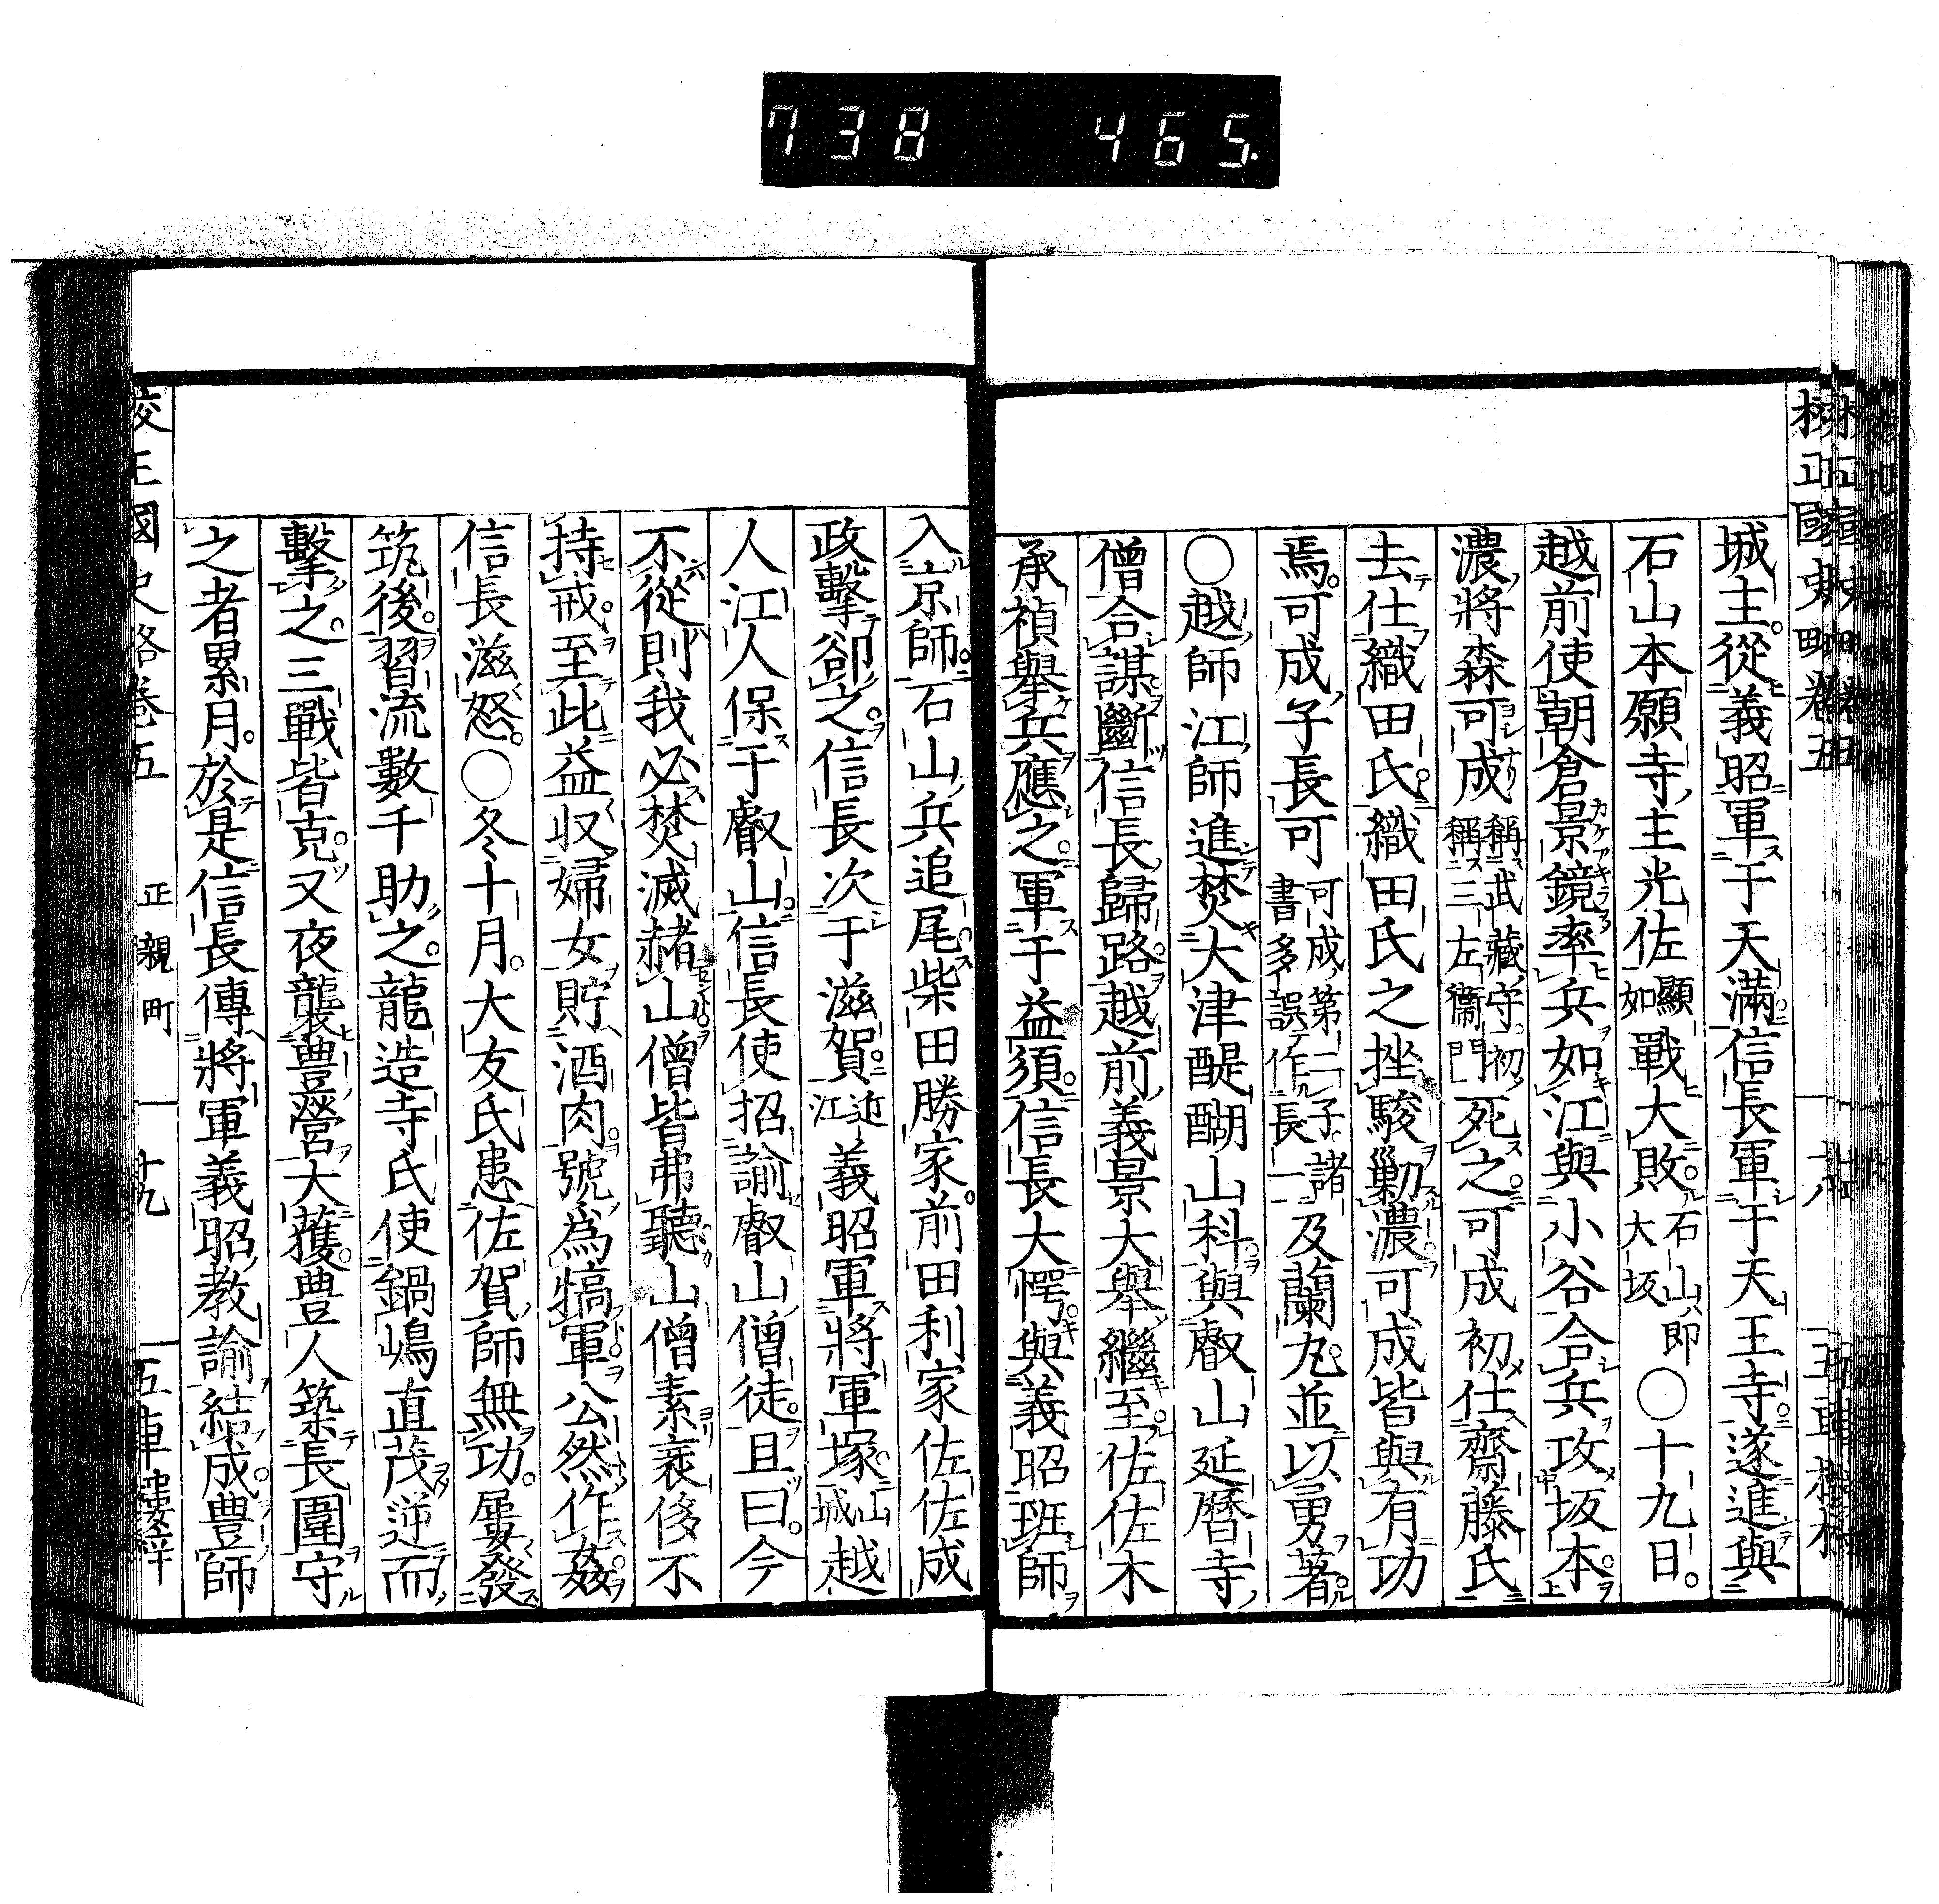 738 465.
校正國史略卷五
城主。從義昭軍于天滿信長軍于天王寺。遂進與
石山本願寺主光佐顯如戰大敗。石山即大坂○十九日。
越前使朝倉景鏡率兵如江與小谷合兵攻坂本。
濃將森可成稱武藏守。初稱三左衞門死之。可成初仕齋藤氏
去仕織田氏。織田氏之挫駿勦濃可成皆與有功
焉。可成子長可可成第二子。諸書多誤作長一及蘭丸。並以勇著。
○越師江師進焚大津醍醐山科。與叡山延曆寺
僧合謀斷信長歸路。越前義景大舉繼至。佐佐木
承禎舉兵應之。軍于益須。信長大愕。與義昭班師
入京師。石山兵追尾。柴田勝家。前田利家佐佐成
政擊卻之。信長次于滋賀。近江義昭軍將軍塚。山城越
人江人保于叡山。信長使招諭叡山僧徒。且曰。今
不從則我必焚滅赭山僧皆弗聽山僧素衺侈不
持戒。至此益収婦女貯酒肉。號爲犒軍公然作姦
信長滋怒。○冬十月。大友氏患佐賀師無功。屢發
筑後。習流數千助之。龍造寺氏使鍋嶋直茂逆而
擊之。三戰皆克。又夜襲豊營大獲。豊人築長圍守
之者累月。於是信長傳將軍義昭教諭結成。豊師
校正國史略卷五 正親町 十九 五車樓梓